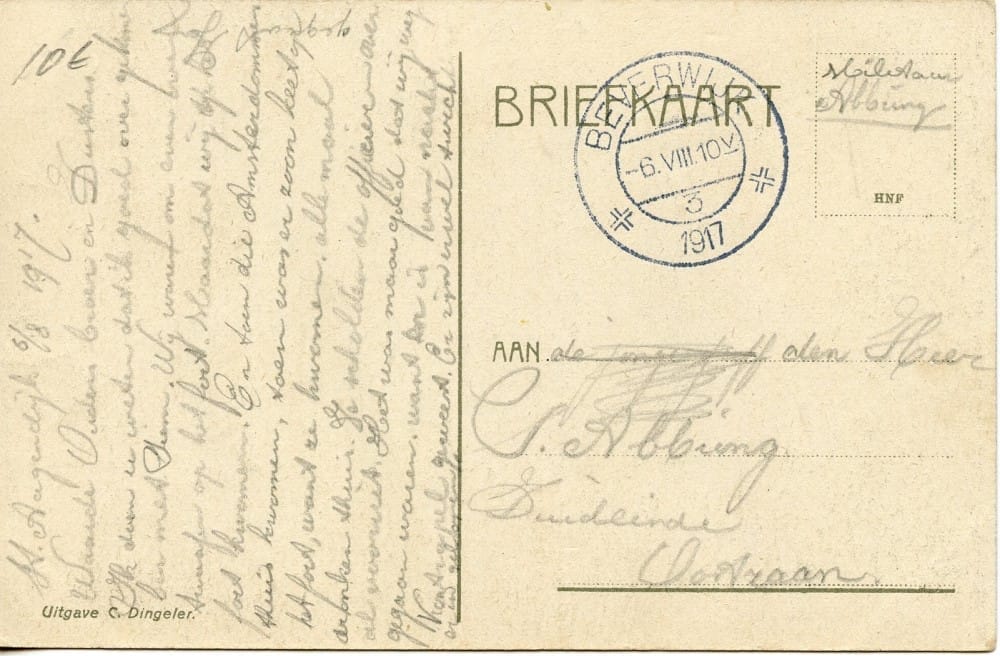 10 €
St. Aagendijk 5/8 1917.
Waarde Ouders broer en Zusters
Ik doen u weten dat ik goed over gekomen
ben met Siem. Wij waren om
twaalf op het fort. Maar dat wij op het
fort kwamen. En toen die Amsterdammers
thuis kwamen, toen was er zoon keet op
het fort, want ze kwamen allemaal
dronken thuis. Ze scholden de officieren over
al voor uit. Het was maar goed dat wij weg
gegaan waren. want er is
geweest. Er zijn wel twech
Uitgave C. Dingeler.
BRIEFKAART
BEVERWIJK
-6.VIII.10V
3
1917
Militair
Abbüng
HNF
AAN de den Heer
S. Abbüng
Zuideinde
Oostzaan